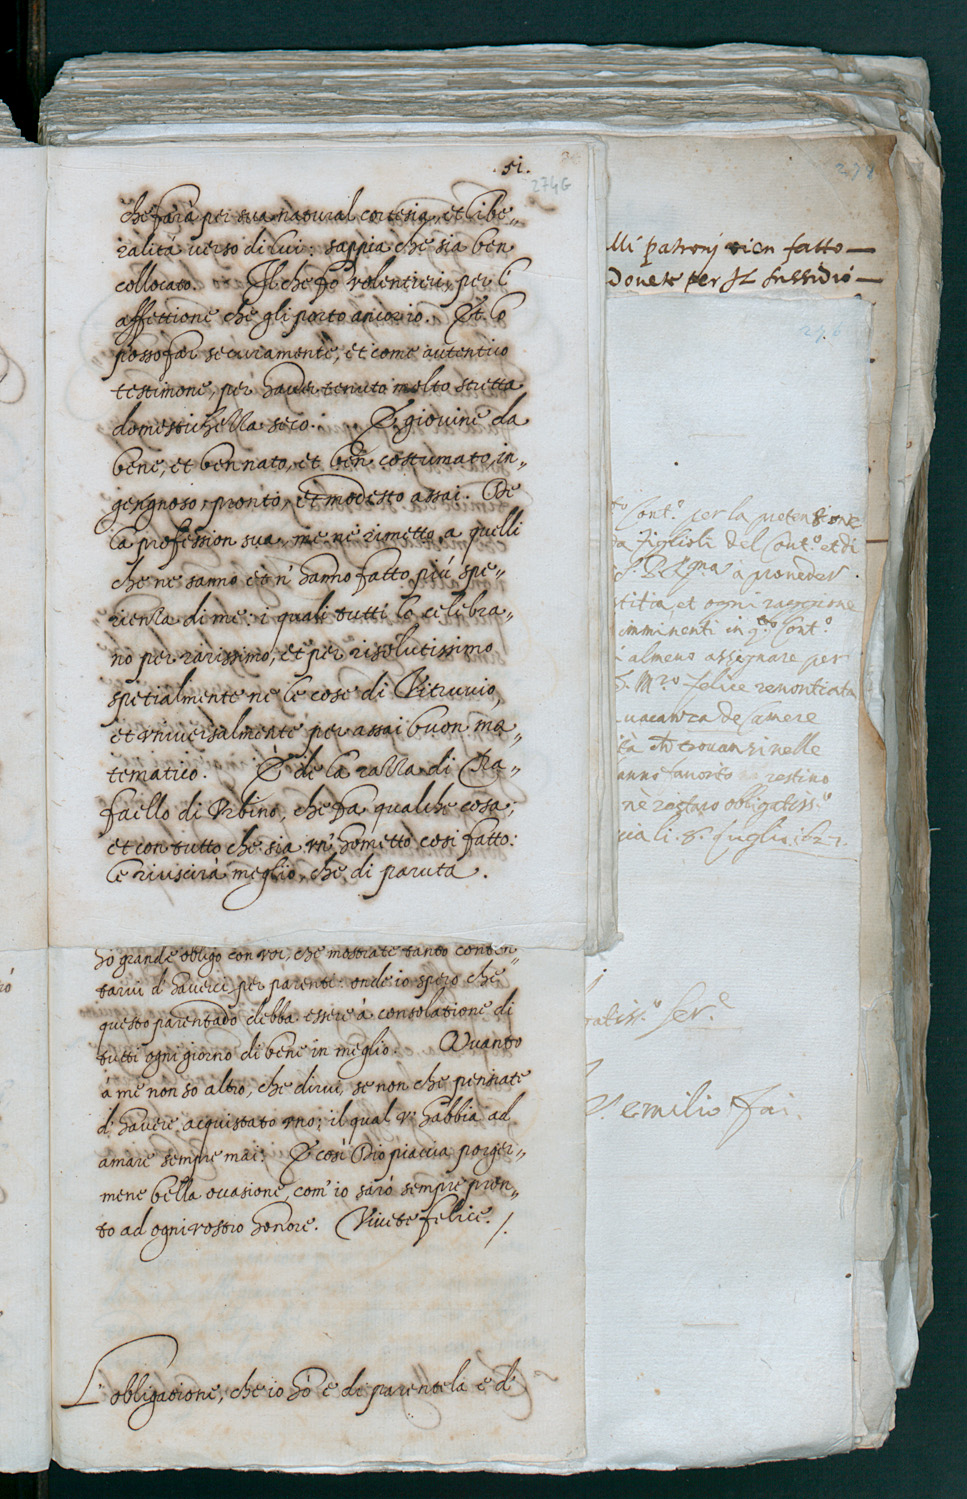 .51.
274G
che farà per sua natural cortesia, et libe„
ralità verso di lui: sappia che sia ben
collocato. Il che fo volentieri, per l'
affettione che gli porto ancor io. Et lo
posso far securamente, et come autentico
testimone, per haver tenuto molto stretta
domestichezza seco. È giovine da
bene, et ben nato, et ben costumato, in„
gengnoso, pronto, et modesto assai. De
la profession sua, me ne rimetto a quelli
che ne sanno et n' hanno fatto più spe„
rienza di me: i quali tutti lo celebra„
no per rarissimo, et per risolutissimo
spetialmente ne le cose di Vitruvio,
et universalmente per assai buon ma„
tematico. È de la razza di Ra„
faello di Urbino, che fa qualche cosa,
et con tutto che sia un' hometto così fatto:
le riuscirà meglio, che di paruta.
hò grande obligo con voi, che mostrate tanto conten„
tarvi d' haverci per parenti: onde io spero che
questo parentado debba essere à consolatione di
tutti ogni giorno di bene in meglio. Quanto
à me non so altro, che dirvi, se non che pensiate
d' havere acquistato uno; il qual v' habbia ad
amare sempre mai. E così Dio piaccia porger„
mene bella occasione, com' io sarò sempre pron„
to ad ogni vostro honore. Vivete felice. /.
L' obligatione, che io hò e di parentela e d'
278
lli patronj vien fatto
Dovete per Il sussidio
276
Cont.º per la pretensione
figlioli del Cont.º et di
à proveder
stitia, et ogni raggione
imminenti in q.to Cont.º
almeno assegnare per
Mro felice renontiata
vacanza de Camere
trovansi nelle
anno favorito restino
nè restarò obligatiss.º
li. 8. luglio. 
ratiss.º Ser.e
emilio fai.